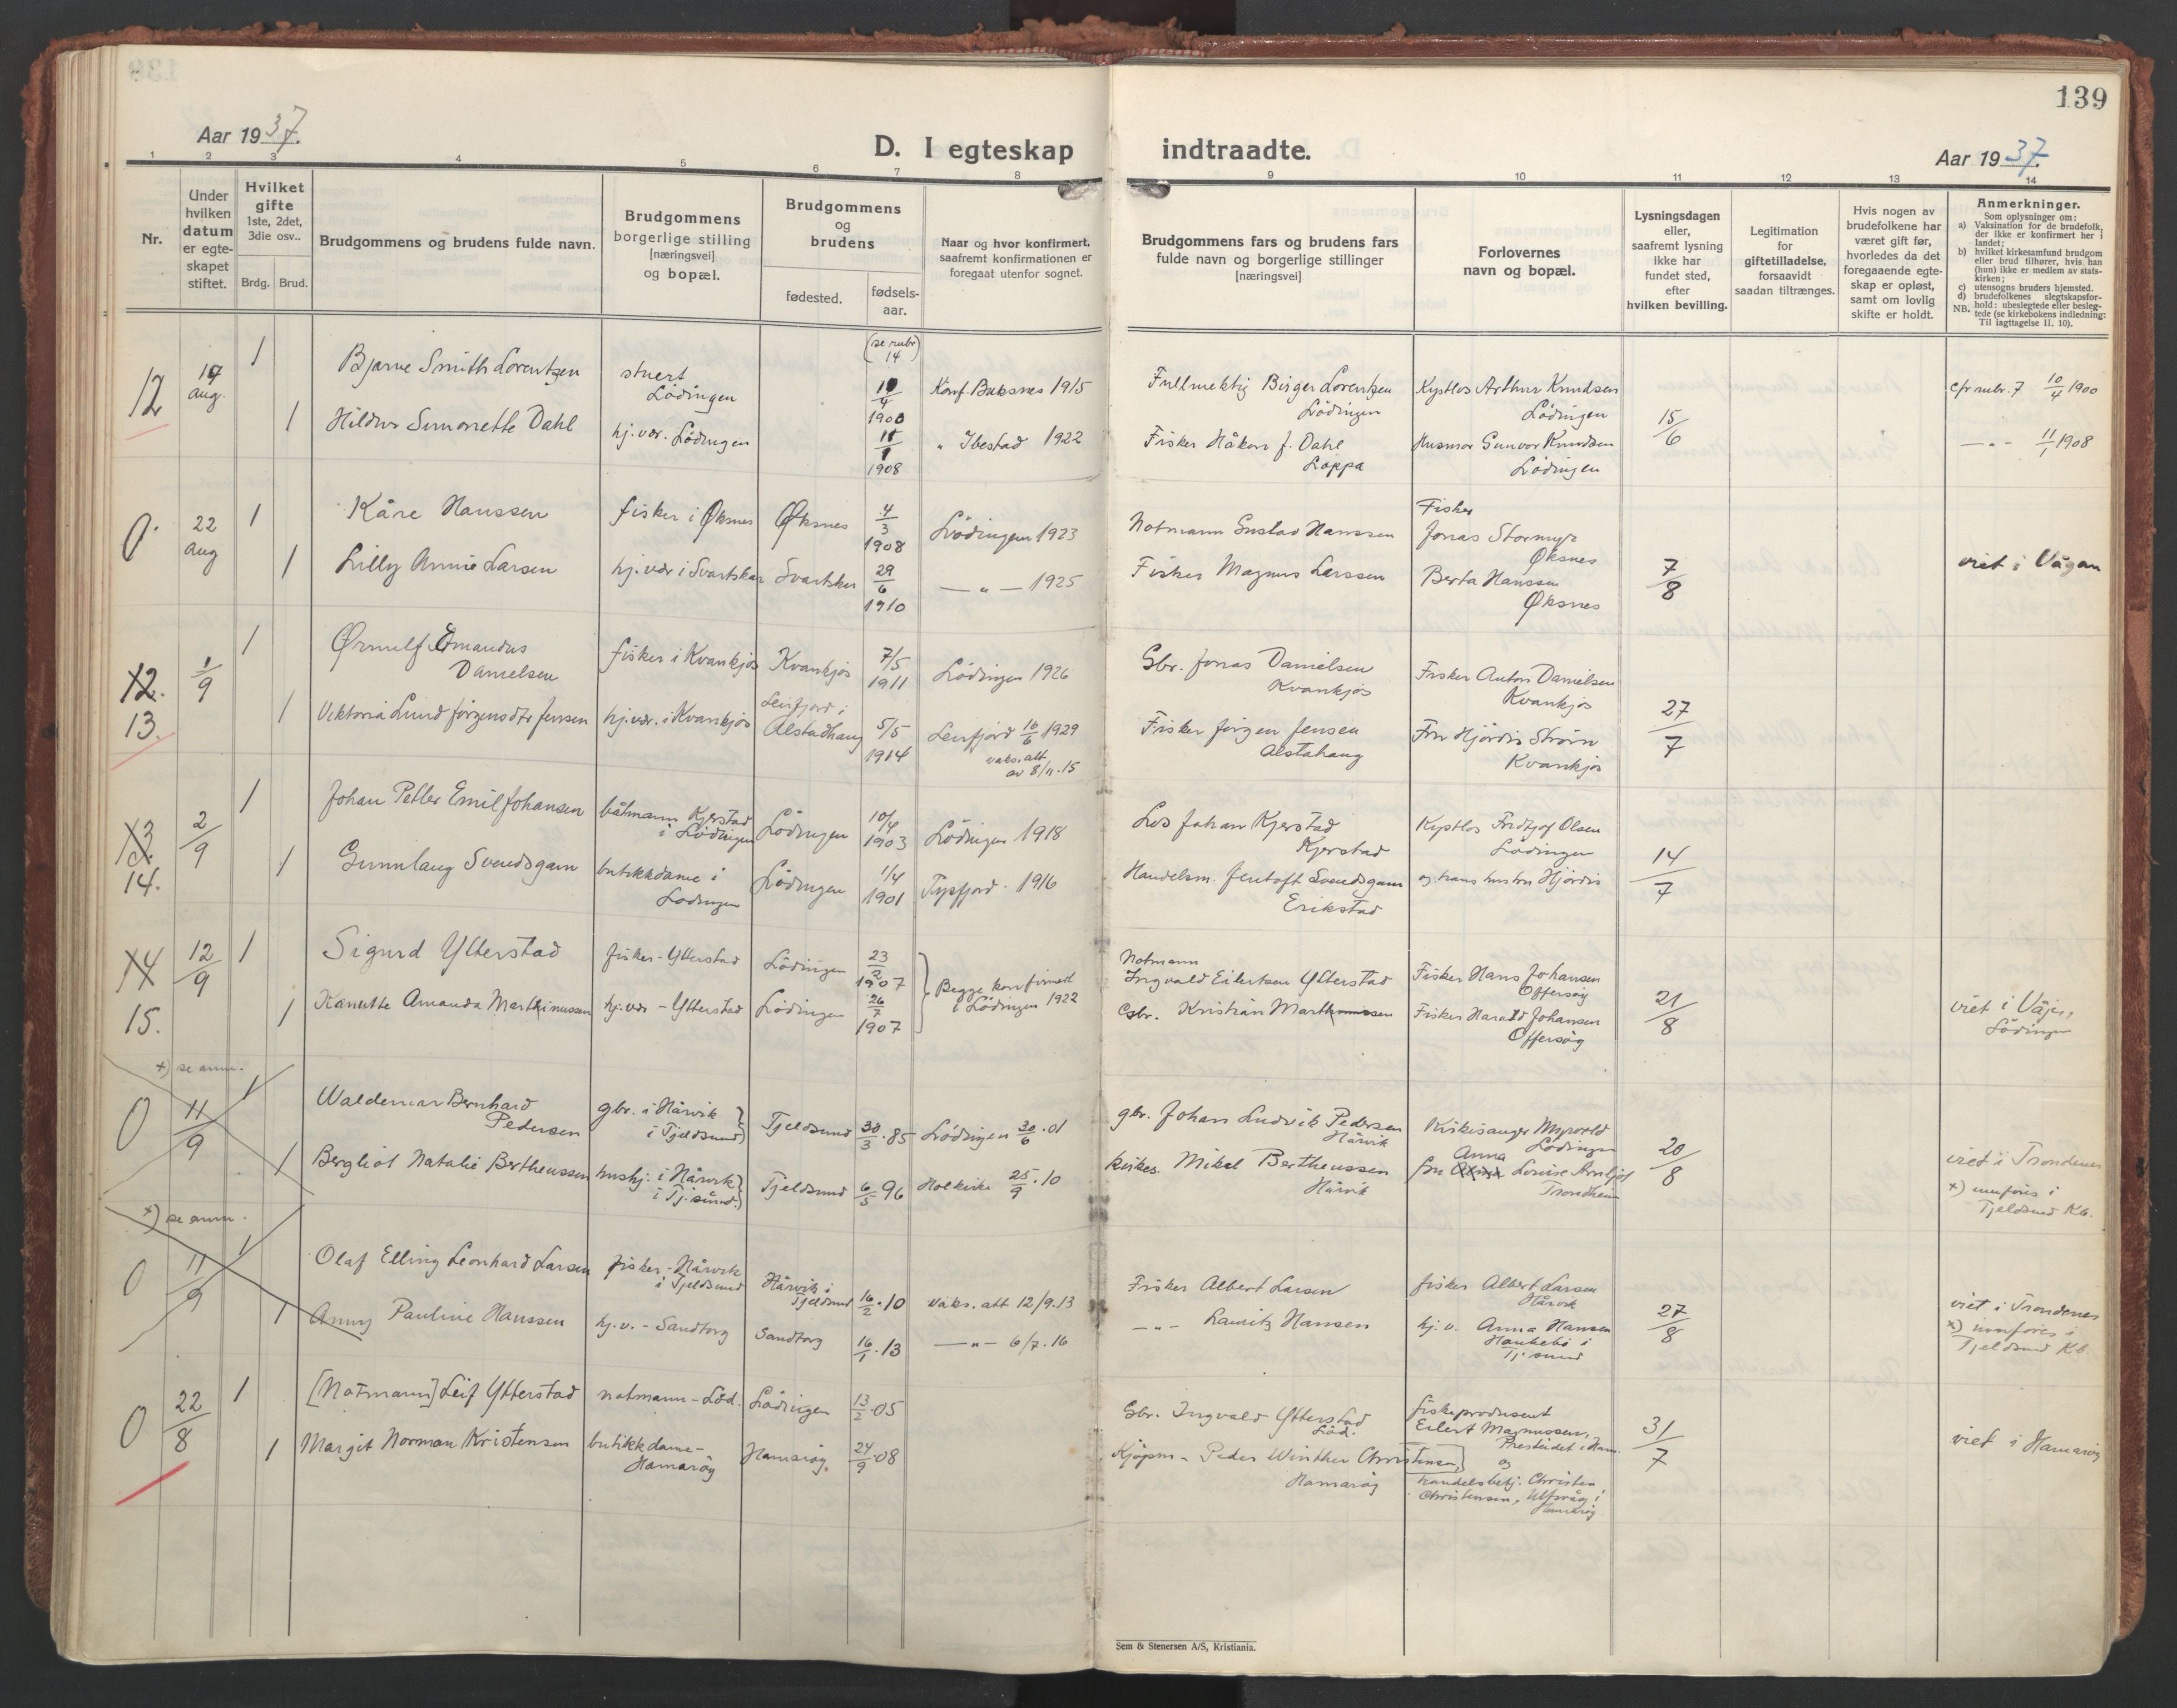 139
Aar 1937.
D. I egteskap indtraadte.
Aar 1937.
1 2 3 4 5 6 7 8 9 10 11 12 13 14
Nr.
Under hvilken datum er egteskapet stiftet.
Hvilket gifte 1ste, 2det, 3die osv..
Brdg. Brud.
Brudgommens og brudens fulde navn.
Brudgommens borgerlige stilling [næringsvei] og bopæl.
Brudgommens og brudens
fødested.
fødselsaar.
Naar og hvor konfirmert, saafremt konfirmationen er foregaat utenfor sognet.
Brudgommens fars og brudens fars fulde navn og borgerlige stillinger [næringsvei]
Forlovernes navn og bopæl.
Lysningsdagen eller, saafremt lysning ikke har fundet sted, efter hvilken bevilling.
Legitimation for giftetilladelse, forsaavidt saadan tiltrænges.
Hvis nogen av brudefolkene har været gift før, hvorledes da det foregaaende egteskap er opløst, samt om lovlig skifte er holdt.
Anmerkninger.
Som oplysninger om:
a) Vaksination for de brudefolk, der ikke er konfirmert her i landet;
b) hvilket kirkesamfund brudgom eller brud tilhører, hvis han (hun) ikke er medlem av statskirken;
c) utensogns bruders hjemsted.
d) brudefolkenes slegtskapsforhold: ubeslegtede eller beslegtede (se kirkebokens indledning: Til iagttagelse II. 10).
NB.
12 aug. 1 Bjarne Smith Lorentzen stuert Lödingen (se rubr 14) 10/4 1900 Konf. Buksnes 1915 Fullmektig Birger Lorentzen Lödingen Kystlos Arthur Knudsen Lödingen 15/6 cfr rubr. 7 10/4 1900
1 Hildur Simonette Dahl hj.vær. Lödingen 11/1 1908 " Ibestad 1922 Fisker Håkon J. Dahl Loppa Husmor Gunvor Knudsen Lödingen — " — 11/1 1908
0. 22 aug 1 Kåre Hanssen fisker i Øksnes Øksnes 4/3 1908 Lödingen 1923 Notmann Gustav Hanssen Fisker Jonas Stormyr Øksnes 7/8 viet i Vågan
1 Lilly Annie Larsen hj.vær i Svartskar Svartskar 29/6 1910 — " — 1925 Fisker Magnus Larssen Berta Hanssen Øksnes
12. 13. 1/9 1 Ørnulf Amandus Danielsen fisker i Kvankjos Kvankjos 7/5 1911 Lödingen 1926 Gbr. Jonas Danielsen Kvankjos Fisker Anton Danielsen Kvankjos 27/7
1 Viktoria Lund Jörgensdtr Jensen hj.vær. i Kvankjos Leirfjord i Alstadhaug 5/5 1914 Leirfjord 16/6 1929 vaks. att. av 8/11.15 Fisker Jörgen Jensen Alstahaug Fru Hjördis Ström Kvankjos
13. 14. 2/9 1 Johan Petter Emil Johansen båtmann Kjerstad i Lödingen Lödingen 10/4 1903 Lödingen 1918 Los Johan Kjerstad Kjerstad Kystlos Fridtjof Olsen Lödingen 14/7
1 Gunnlaug Svendsgam butikkdame i Lodingen Lödingen 1/4 1901 Tysfjord. 1916 Handelsm. Jentoft Svendsgam Erikstad og hans hustru Hjördis
14 15. 12/9 1 Sigurd Ytterstad fisker - Ytterstad Lödingen 23/2 1907 Begge konfirmert i Lödingen 1922 Notmann Ingvald Eilertsen Ytterstad Fisker Hans Johansen Offersöy 21/8 viet i Lödingen
1 Kanutte Amanda Marthinussen hj.vær - Ytterstad Lödingen 26/7 1907 Gbr. Kristian Marthinussen Fisker Harald Johansen Offersöy
x) se anm.
0 11/9 1 Waldemar Bernhard Pedersen gbr. i Hårvik i Tjeldsund Tjeldsund 30/3.85 Lödingen 30/6.01 gbr. Johan Ludvik Pedersen Hårvik Kirkesanger Myrvold Lödingen 20/8 viet i Trondenes
1 Bergliot Natalie Bertheussen hushj. i Hårvik i Tj.sund. Tjeldsund 6/5 96 Holkirke 25/9.10 Mikal Bertheussen Hårvik fru Anna Lovise Arnljot Trondheim x) innföres i Tjeldsund Kb.
x) se anm.
0 11/9 1 Olaf Elling Leonhard Larsen fisker - Hårvik i Tjeldsund Hårvik i Tjeldsund 16/2.10 vaks. att 12/9.13 Fisker Albert Larsen fisker Albert Larsen Hårvik 27/8 viet i Trondenes
1 Anny Pauline Hanssen hj.v. - Sandtorg Sandtorg 16/1.13 — " — 6/7.16 — " — Lauritz Hansen hj.v. Anna Hansen Haukebö i Tj.sund x) innföres i Tjeldsund Kb.
0 22/8 1 [Notmann] Leif Ytterstad notmann - Löd. Lödingen 13/2.05 Gbr. Ingvald Ytterstad Löd. fiskeprodusent Eilert Magnussen, Presteidet i Ham. og 31/7 viet i Hamaröy
1 Margit Norman Kristensen butikkdame - Hamaröy Hamaröy. 24/9.08 Kjöpm - Peder Winther Christensen, Hamaröy handelsbetj. Christen Christensen, Ulfsvåg i Hamaröy
Sem & Stenersen A/S, Kristiania.